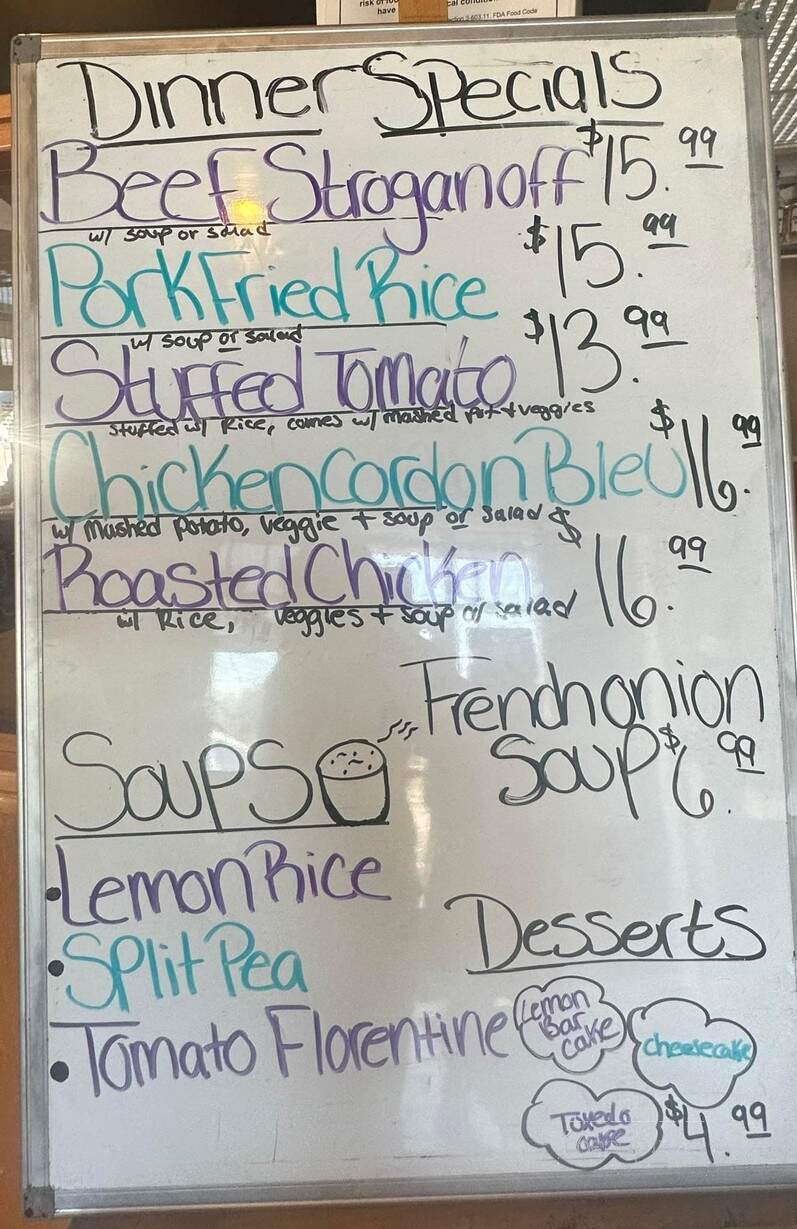 risk of foo
have
cal conditi
ction 3-603.11, FDA Food Code
Dinner Specials
Beef Stroganoff $15.99
w/ soup or salad
Pork Fried Rice $15.99
w/ soup or salad
Stuffed Tomato $13.99
stuffed w/ Rice, comes w/ mashed pot + veggies
Chicken Cordon Bleu $16.99
w/ mashed potato, veggie + soup or salad
Roasted Chicken $16.99
w/ Rice, veggies + soup or salad
French onion
Soup $6.99
Soups
• Lemon Rice
• Split Pea
• Tomato Florentine
Desserts
Lemon
Bar
cake
cheesecake
Tuxedo
cake
$4.99